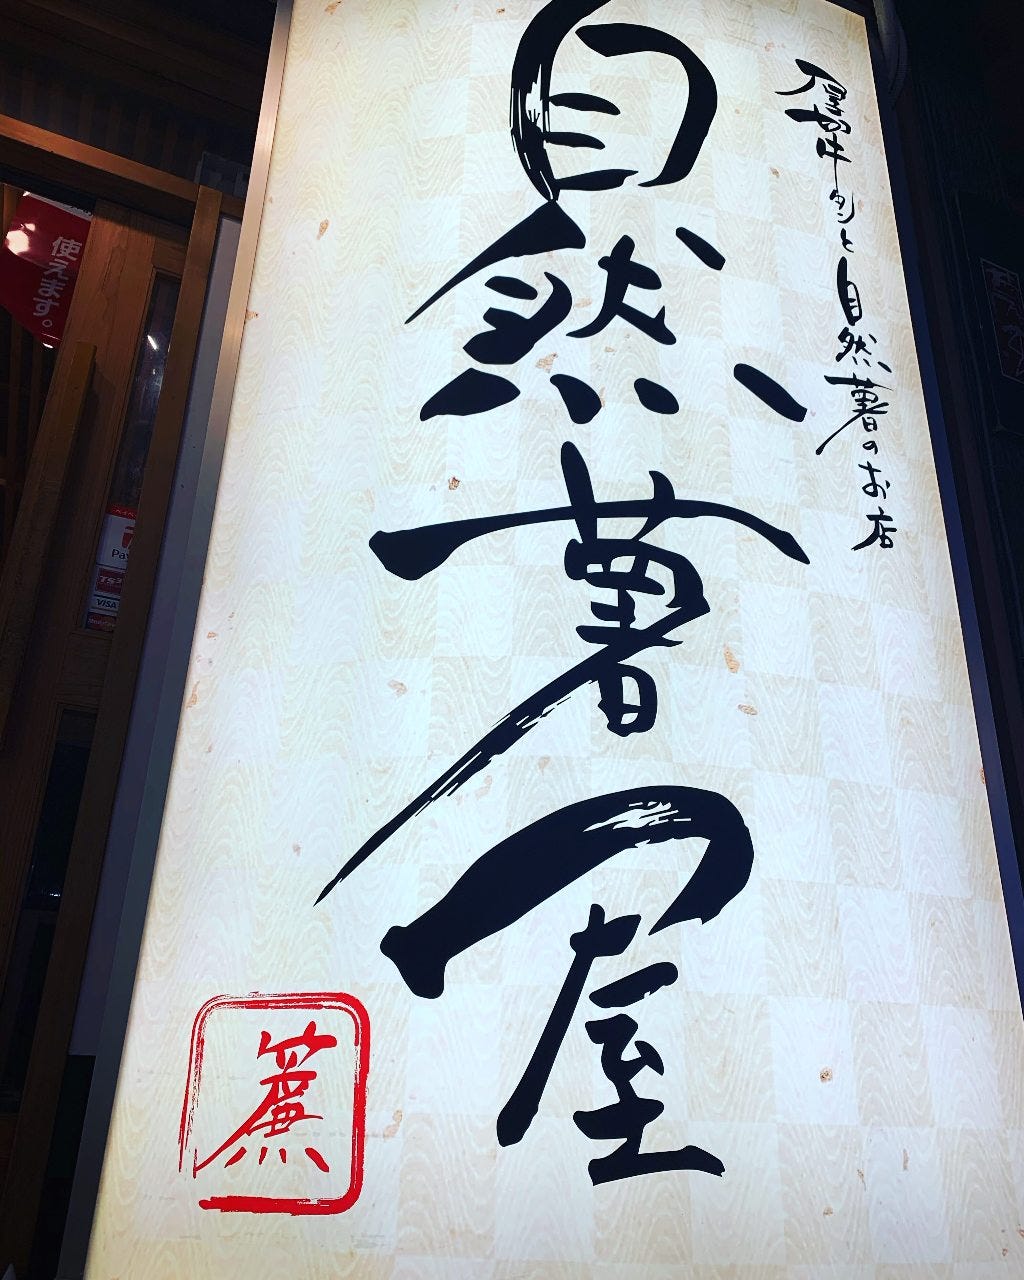 厚切牛タンと自然薯のお店
自然薯屋
簾
使えます。
Pay
VISA